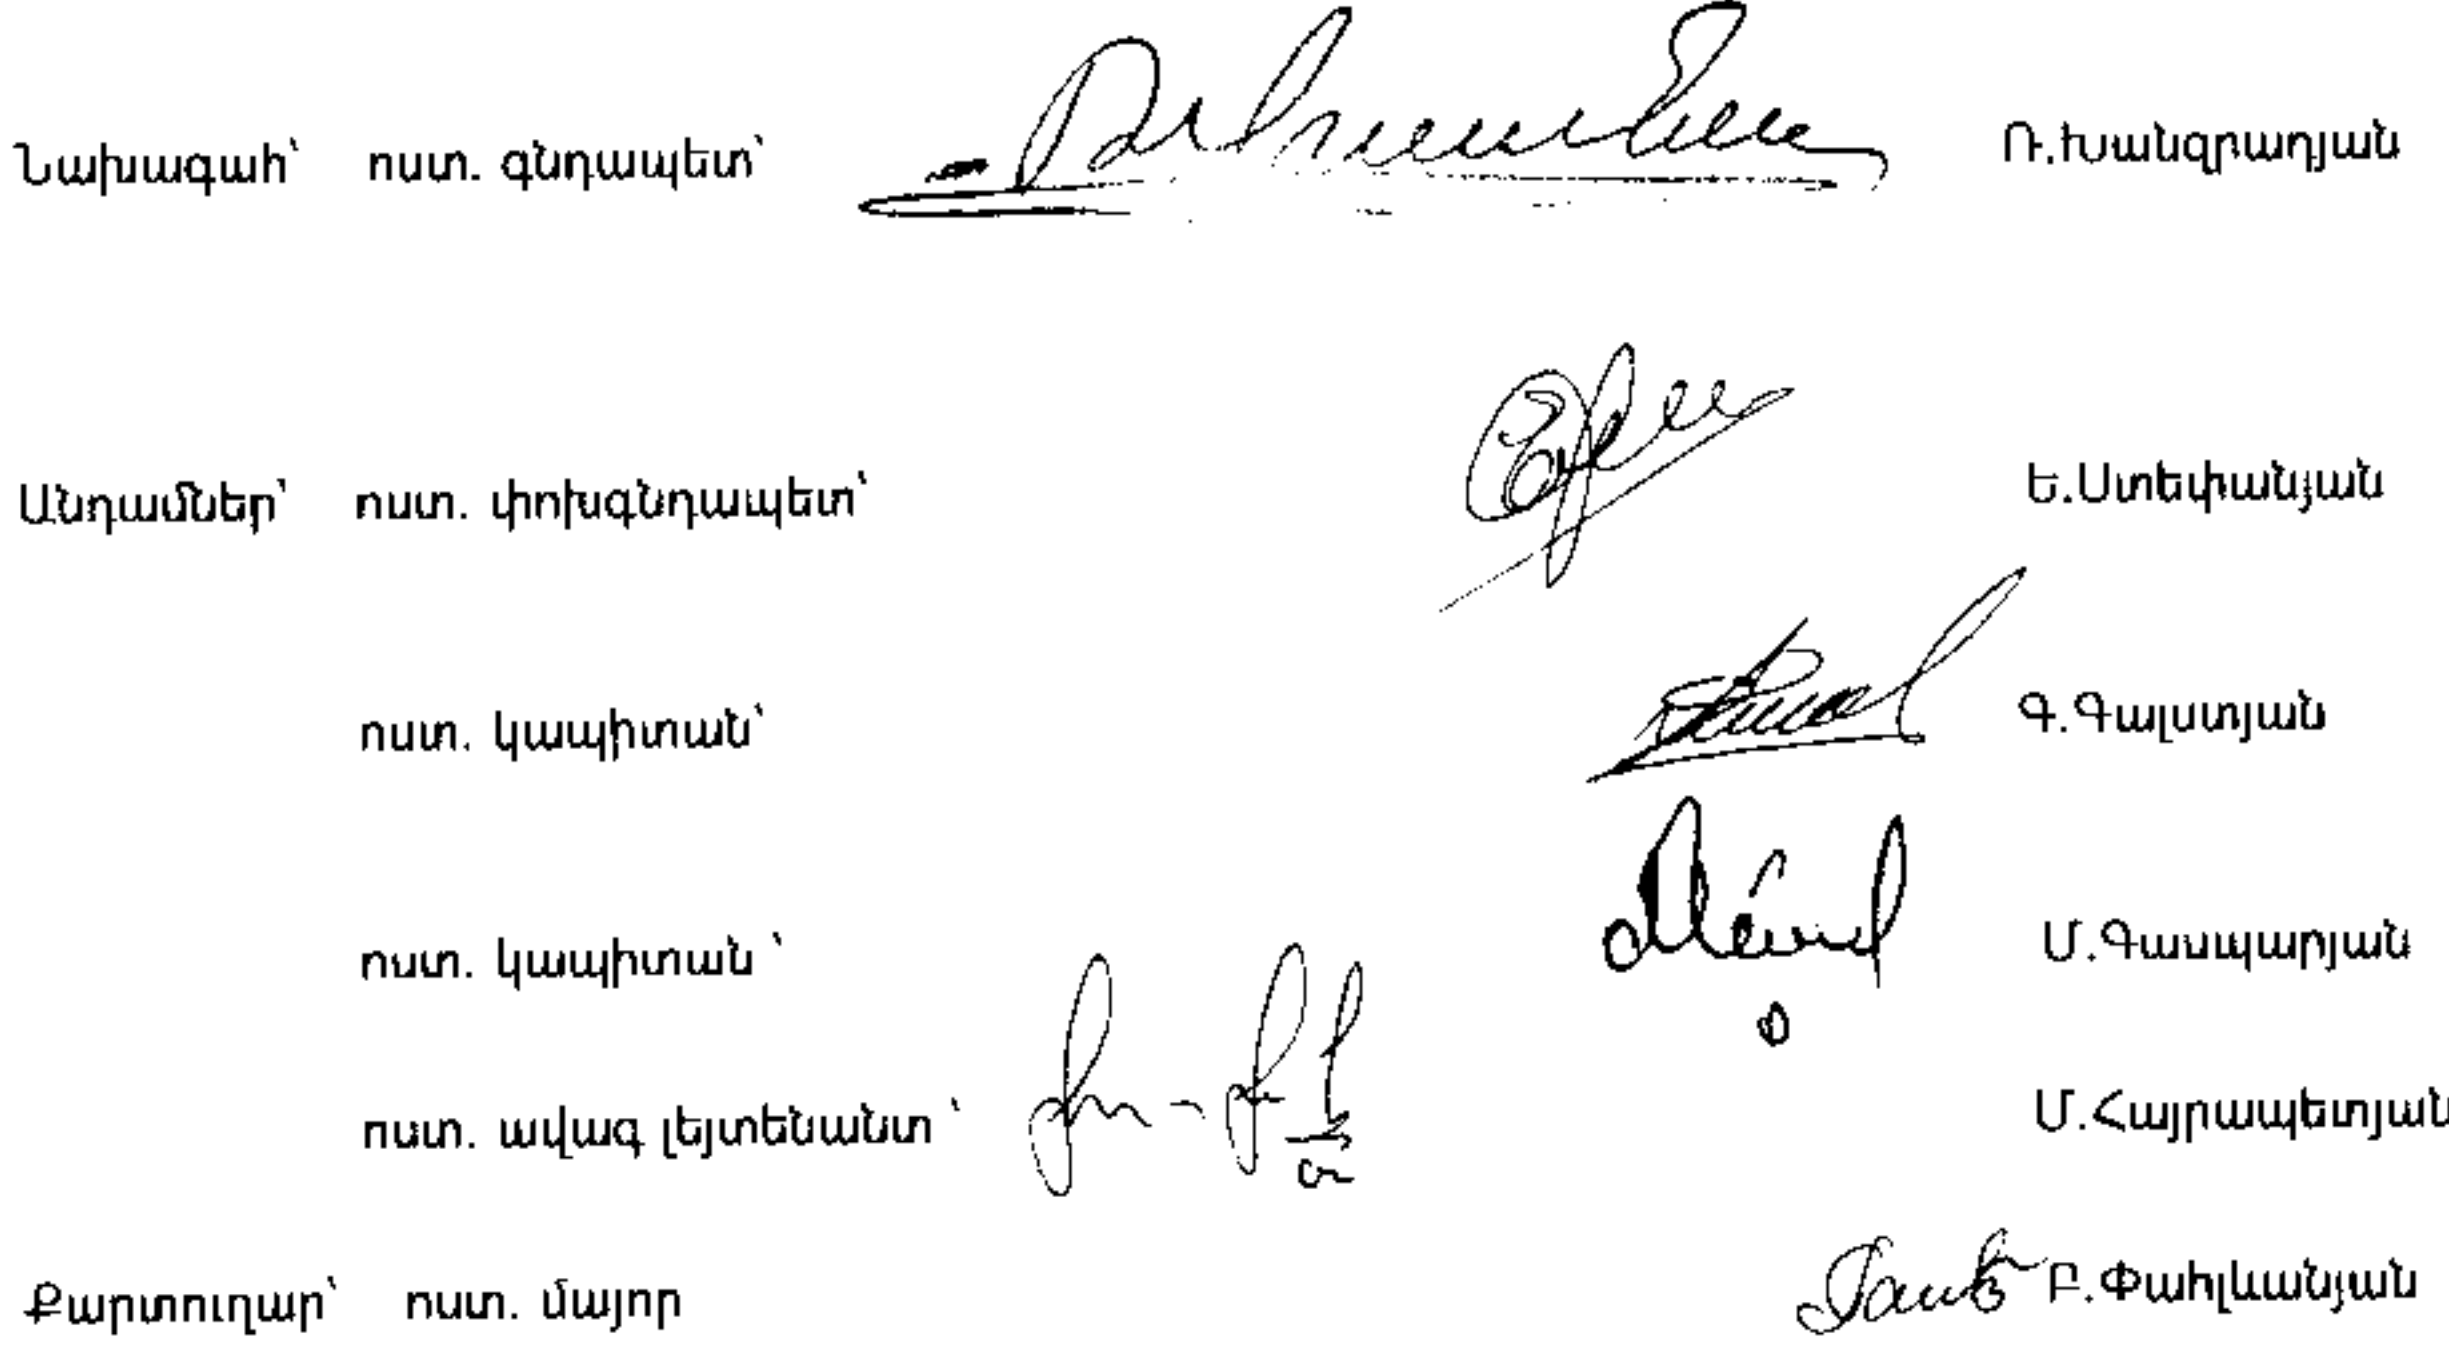 Նախագահ՝ ոստ. գնդապետ՝ Ռ.Խանզրադյան
Անդամներ՝ ոստ. փոխգնդապետ՝ Ե.Ստեփանյան
ոստ. կապիտան՝ Գ.Գալստյան
ոստ. կապիտան ՝ Մ.Գասպարյան
ոստ. ավագ լեյտենանտ ՝ Մ.Հայրապետյան
Քարտուղար՝ ոստ. մայոր Բ.Փահլևանյան